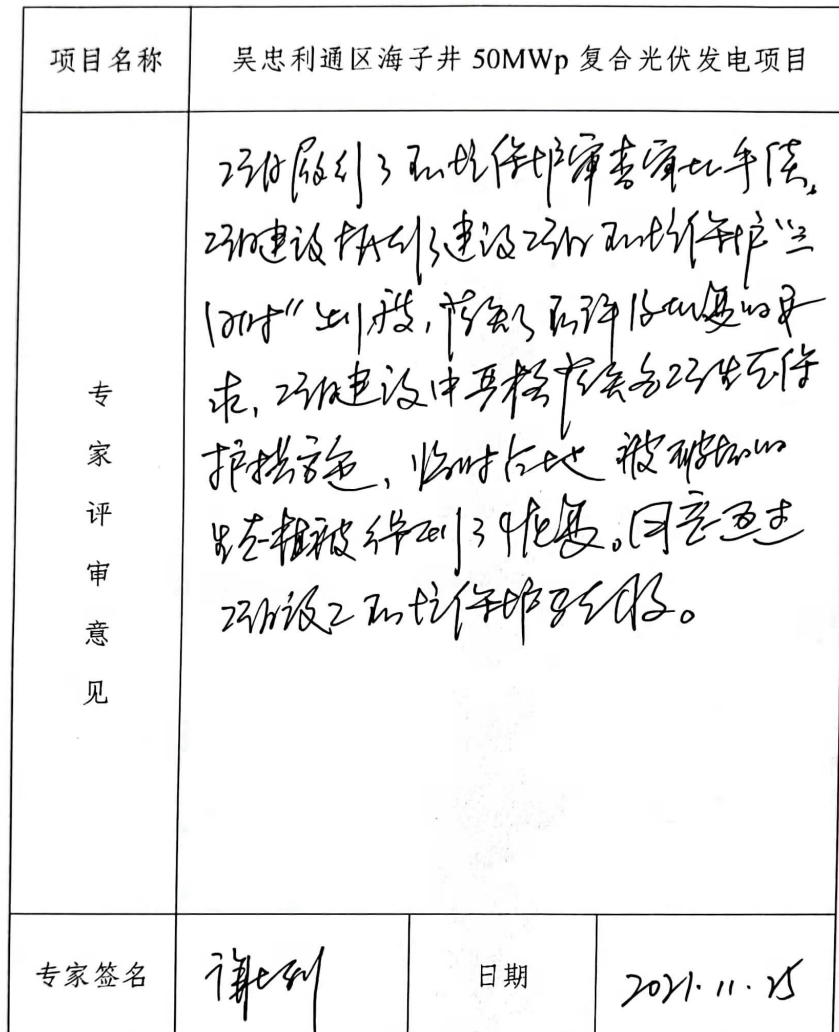 项目名称 吴忠利通区海子井 50MWp 复合光伏发电项目
专家评审意见
项目履行了环境保护审查审批手续,
项目建设执行了建设项目环境保护“三
同时”制度,落实了环评及批复的要
求,项目建设中严格落实各项生态保
护措施,临时占地 被破坏的
生态植被得到了恢复。同意通过
项目竣工环境保护验收。
专家签名 日期 2021.11.25